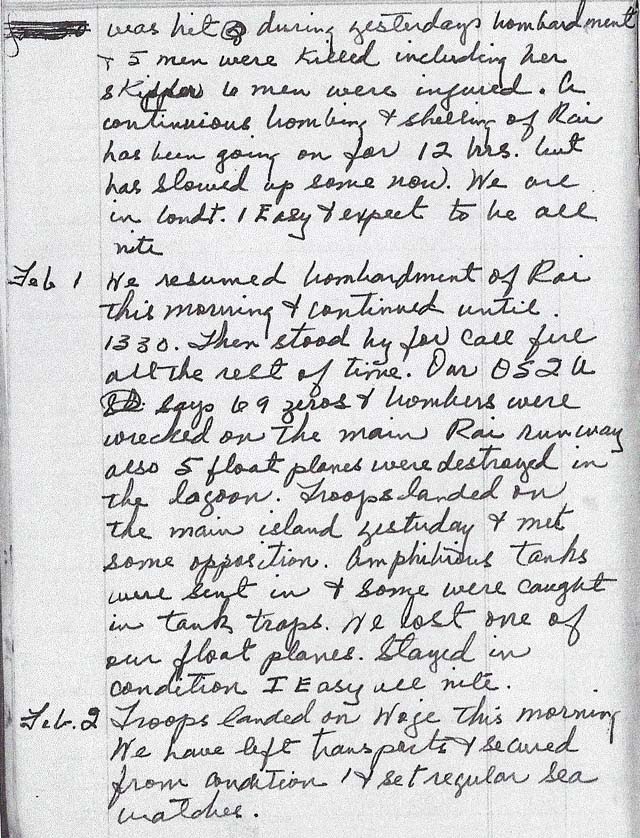 was hit during yesterdays bombardment
& 5 men were killed including her
skipper 6 men were injured. A
continuious bombing & shelling of Roi
has been going on for 12 hrs. but
has slowed up some now. We are
in Condt. 1 Easy & expect to be all
nite
Feb 1 We resumed bombardment of Roi
this morning & continued until
1330. Then stood by for call fire
all the rest of time. Our OS2U
says 69 zeros & bombers were
wrecked on the main Roi runway
also 5 float planes were destroyed in
the lagoon. Troops landed on
the main island yesterday & met
some opposition. Amphibious tanks
were sent in & some were caught
in tank traps. We lost one of
our float planes. Stayed in
condition I Easy all nite.
Feb. 2 Troops landed on Woje this morning
We have left transports & secured
from condition 1 & set regular sea
watches.